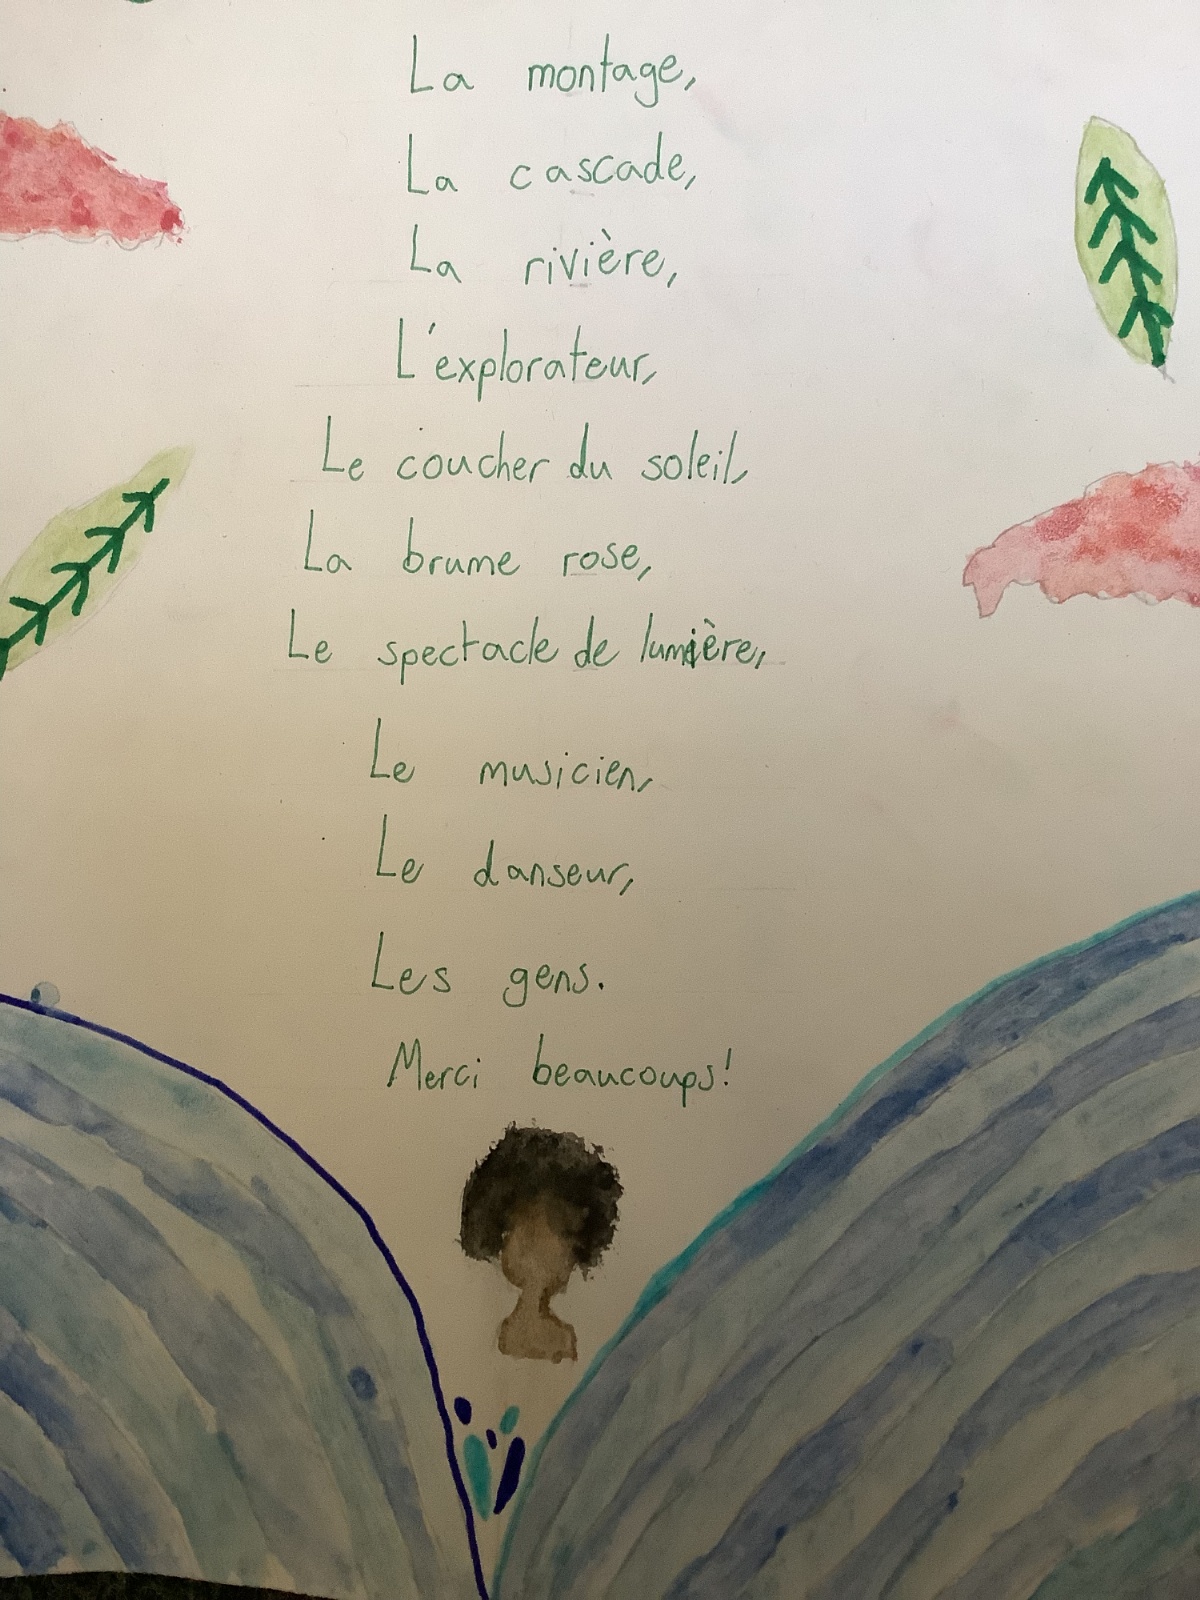 La montage,
La cascade,
La rivière,
L'explorateur,
Le coucher du soleil,
La brume rose,
Le spectacle de lumière,
Le musicien,
Le danseur,
Les gens.
Merci beaucoups!